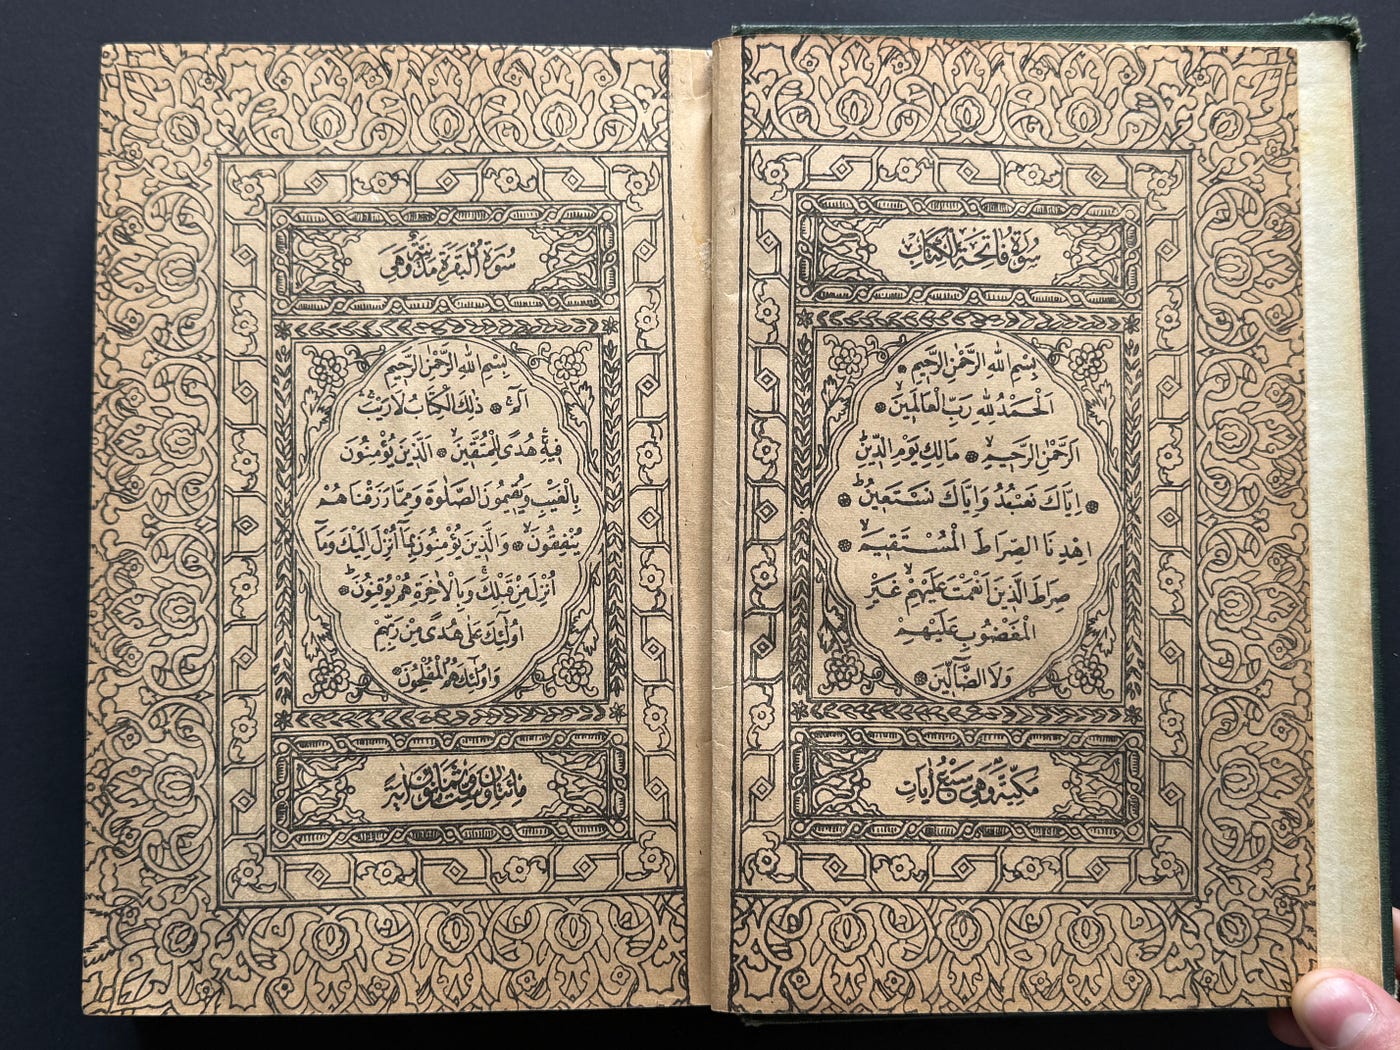 سُورَةُ فَاتِحَةِ الْكِتَابِ
بِسْمِ اللهِ الرَّحْمٰنِ الرَّحِيمِ
اَلْحَمْدُ لِلّٰهِ رَبِّ الْعَالَمِينَۙ
اَلرَّحْمٰنِ الرَّحِيمِۙ مَالِكِ يَوْمِ الدِّينِۜ
اِيَّاكَ نَعْبُدُ وَاِيَّاكَ نَسْتَعِينُۜ
اِهْدِنَا الصِّرَاطَ الْمُسْتَقِيمَۙ
صِرَاطَ الَّذِينَ اَنْعَمْتَ عَلَيْهِمْۙ غَيْرِ
الْمَغْضُوبِ عَلَيْهِمْ
وَلَا الضَّٓالِّينَ
مَكِّيَّةٌ وَهِيَ سَبْعُ اٰيَاتٍ
سُورَةُ الْبَقَرَةِ مَدَنِيَّةٌ وَهِيَ
بِسْمِ اللهِ الرَّحْمٰنِ الرَّحِيمِ
الٓمٓۚ ذٰلِكَ الْكِتَابُ لَا رَيْبَۚ
فِيهِۚ هُدًى لِلْمُتَّقِينَۙ اَلَّذِينَ يُؤْمِنُونَ
بِالْغَيْبِ وَيُقِيمُونَ الصَّلٰوةَ وَمِمَّا رَزَقْنَاهُمْ
يُنْفِقُونَۙ وَالَّذِينَ يُؤْمِنُونَ بِمَٓا اُنْزِلَ اِلَيْكَ وَمَٓا
اُنْزِلَ مِنْ قَبْلِكَۚ وَبِالْاٰخِرَةِ هُمْ يُوقِنُونَۜ
اُولٰٓئِكَ عَلٰى هُدًى مِنْ رَبِّهِمْ
وَاُولٰٓئِكَ هُمُ الْمُفْلِحُونَ
مِائَتَانِ وَسِتٌّ وَثَمَانُونَ اٰيَةً